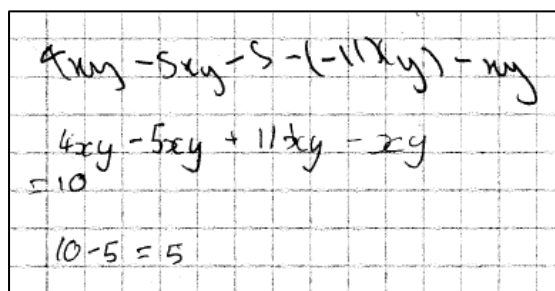 4xy - 5xy - 5 - (-11xy) - xy
4xy - 5xy + 11xy - xy
= 10
10 - 5 = 5